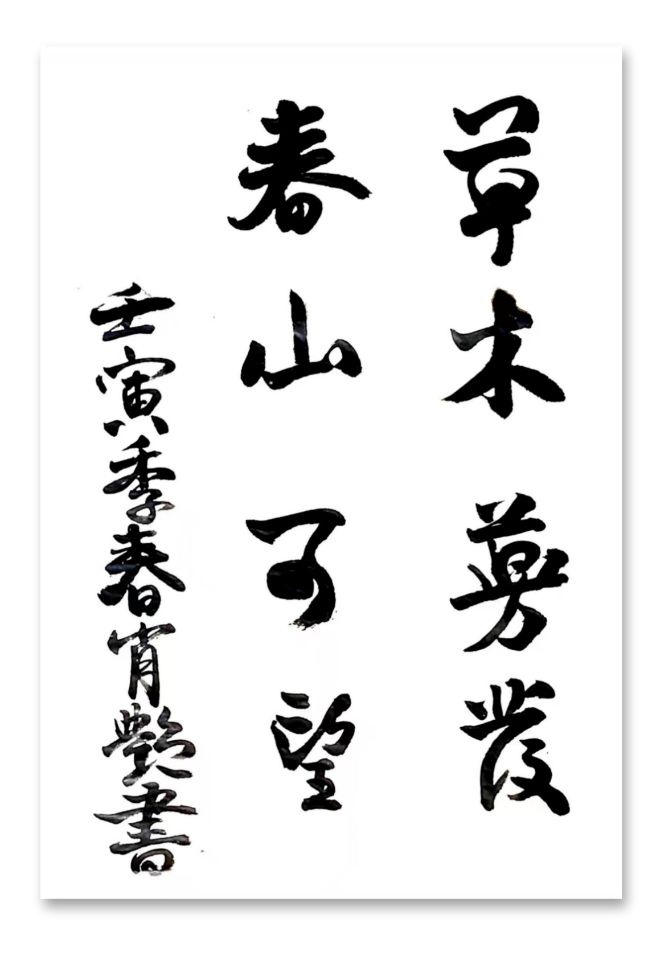 草木蔓發
春山可望
壬寅季春肖艷書